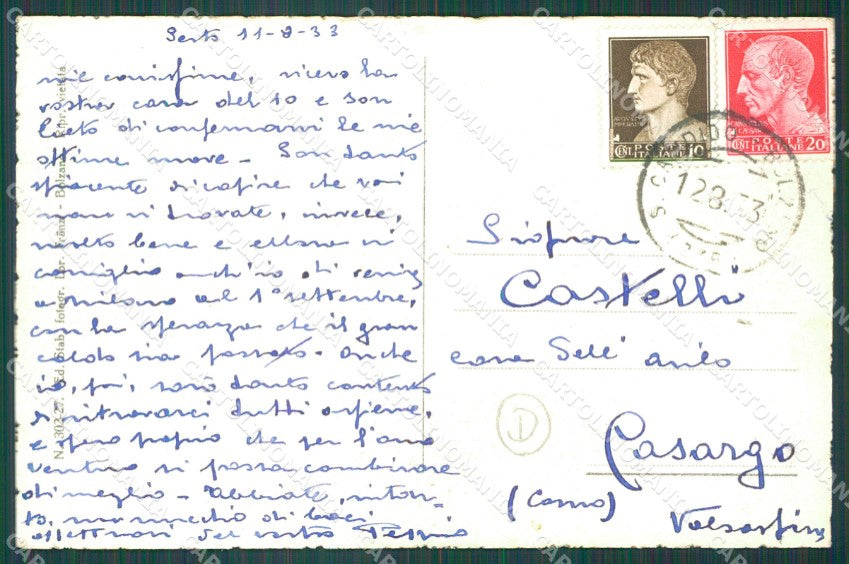 Sesto 11-8-33
mie carissime, ricevo la
vostra cara del 10 e son
lieto di confermarvi le mie
ottime nuove - Son tanto
spiacente di capire che voi
non vi trovate, invece,
molto bene e allora vi
consiglio anch'io di venire
a Milano al 1° settembre,
con la speranza che il gran
caldo sia passato - Anche
io, poi, sarò tanto contento
di ritrovarci tutti assieme,
e spero proprio che per l'anno
venturo si possa combinare
di meglio - Abbiate, intan-
to, un mucchio di baci
affettuosi dal vostro Peppino
Signore
Castelli
casa Dell'
Casargo
(Como)
Valsassina
D
AUGVSTVS
CENT. POSTE ITALIANE 10
CAESAR
CENT. POSTE ITALIANE 20
S. CANDIDO BOLZANO
12 8 33
N. 1302-27. Ed. Stab. fotogr. Dor. Fränzl - Bolzano - Ripr. vietata
CARTOLINOMANIA